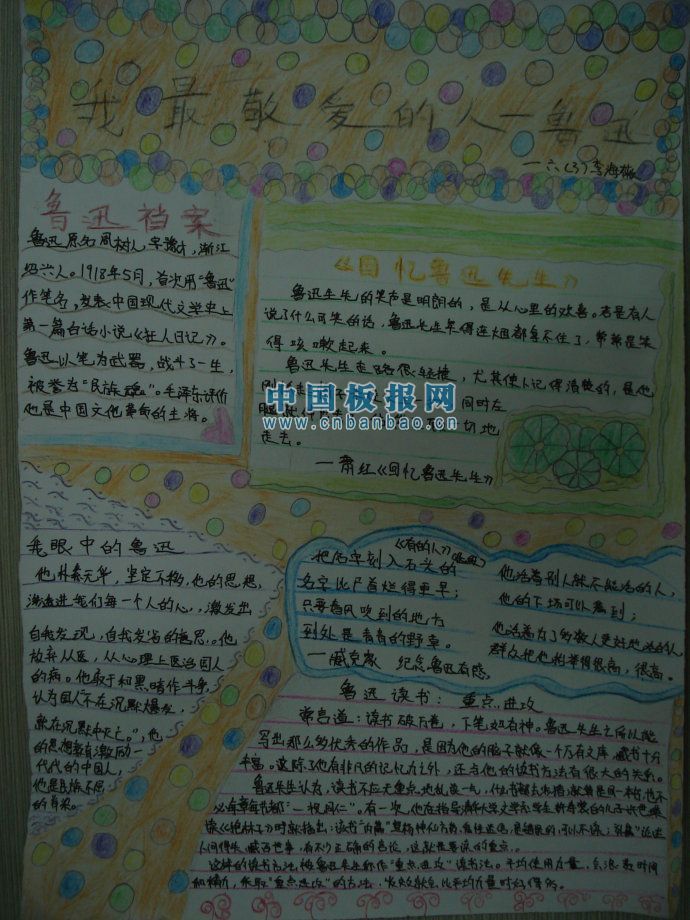 我最敬爱的人—鲁迅
—六(3)李海
鲁迅档案
鲁迅原名周树人,字豫才,浙江
绍兴人。1918年5月,首次用“鲁迅”
作笔名,发表中国现代文学史上
第一篇白话小说《狂人日记》。
鲁迅以笔为武器,战斗了一生,
被誉为“民族魂”。毛泽东评价
他是中国文化革命的主将。
《回忆鲁迅先生》
鲁迅先生的笑声是明朗的,是从心里的欢喜。若是有人
说了什么可笑的话,鲁迅先生笑得连烟都拿不住了,常常是笑
得咳嗽起来。
鲁迅先生走路很轻捷,尤其使人记得清楚的,是他
同时左
切地
走去。
—萧红《回忆鲁迅先生》
中国板报网
www.cnbanbao.cn
我眼中的鲁迅
他朴素无华,坚定不移,他的思想,
渗透进我们每一个人的人,,激发出
自我发现,自我发省的意思。他
放弃从医,从心理上医治国人
的病。他敢于和黑暗作斗争,
认为国人“不在沉默中爆发,
就在沉默中灭亡。”,他
的思想教育激励一
代代的中国人,
他是民族不屈
的脊梁。
《有的人》
把名字刻入石头的
名字比尸首烂得更早;
只要春风吹到的地方
到处是青青的野草。
—臧克家 纪念鲁迅有感
他活着别人就不能活的人,
他的下场可以看到;
他活着为了多数人更好地活的人
群众把他抬举得很高,很高。
鲁迅读书:重点进攻
常言道:读书破万卷,下笔如有神。鲁迅先生之所以能
写出那么多优秀的作品,是因为他的脑子就像一个万有文库,藏书十分
丰富。这除了他有非凡的记忆力之外,还与他的读书方法有很大的关系。
鲁迅先生认为,读书不应无重点地乱读一气,
必每章每节都“一视同仁”。有一次,他在指导清华大学文学系学生许寿裳的儿子许世瑛
这样的读书方法,被鲁迅先生称作“重点进攻”读书法。平均使用力量,会浪费时间
和精力,采取“重点进攻”的方法,